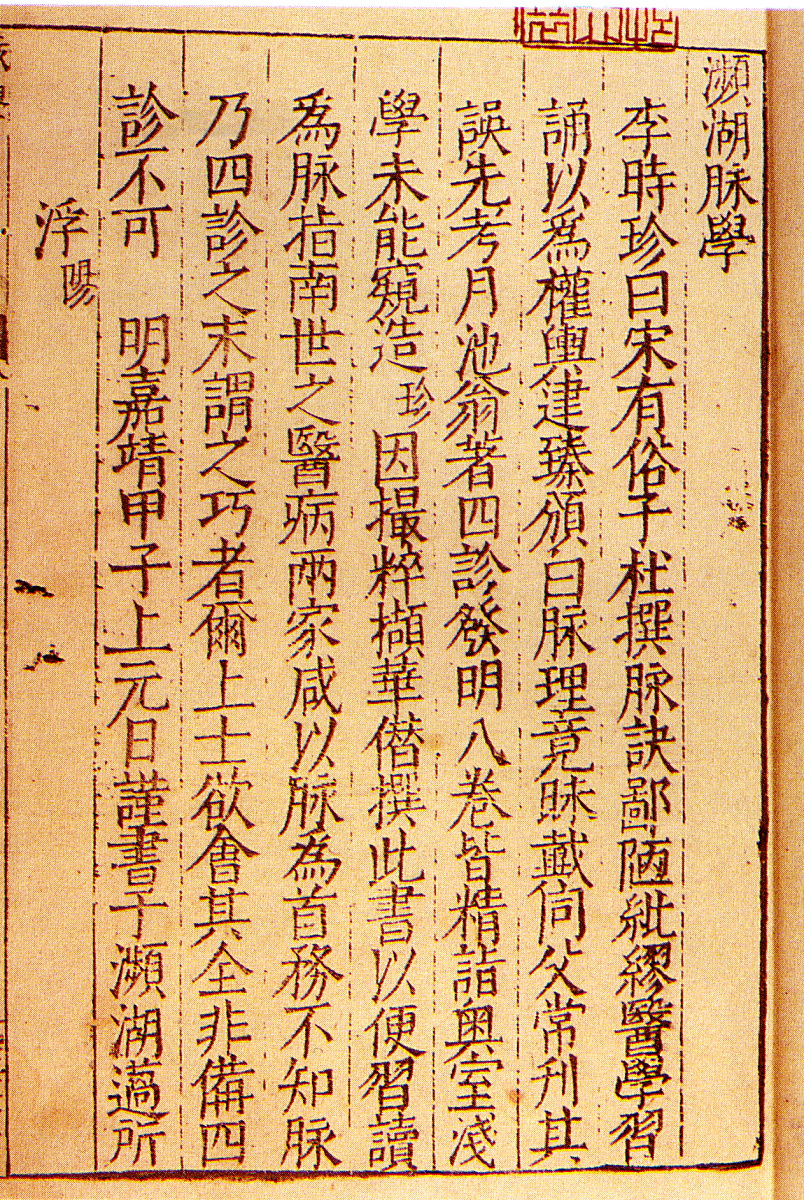 瀕湖脉學
李時珍曰宋有俗子杜撰脉訣鄙陋紕繆醫學習
誦以爲權輿逮臻頒白脉理竟昧戴同父常刋其
誤先考月池翁著四診發明八卷皆精詣奥室淺
學未能窺造珍因撮粹擷華僭撰此書以便習讀
爲脉指南世之醫病兩家咸以脉為首務不知脉
乃四診之末謂之巧者爾上士欲會其全非備四
診不可　明嘉靖甲子上元日謹書于瀕湖薖所
浮陽